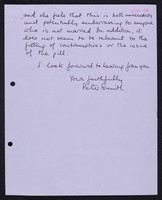 and she feels that this is both unnecessary
and potentially embarrassing to anyone
who is not married. In addition, it
does not seem to be relevant to the
fitting of contraceptives or the issue
of the pill.
I look forward to hearing from you
Yours faithfully
Smith